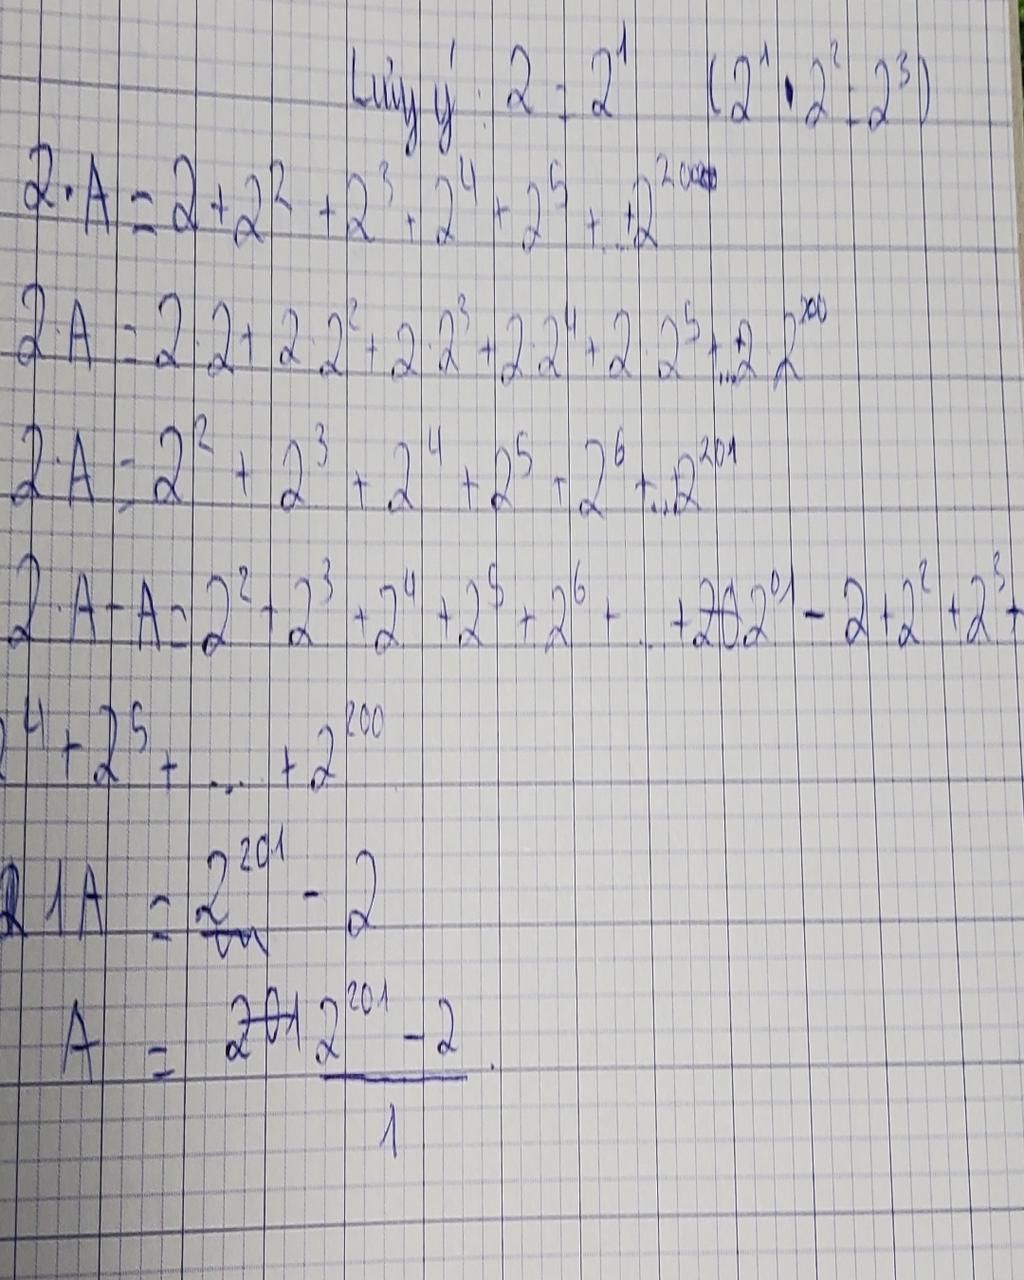 Lưu ý : 2 = 2¹ (2¹ . 2² = 2³)
2 . A = 2 + 2² + 2³ + 2⁴ + 2⁵ + ... + 2²⁰⁰
2 . A = 2 . 2 + 2 . 2² + 2 . 2³ + 2 . 2⁴ + 2 . 2⁵ + ... + 2 2²⁰⁰
2 . A = 2² + 2³ + 2⁴ + 2⁵ + 2⁶ + ... 2²⁰¹
2 . A - A = 2² + 2³ + 2⁴ + 2⁵ + 2⁶ + ... + 2²⁰¹ - 2 + 2² + 2³ +
2⁴ + 2⁵ + .... + 2²⁰⁰
1A = 2²⁰¹ - 2
A = 2²⁰¹ - 2
1